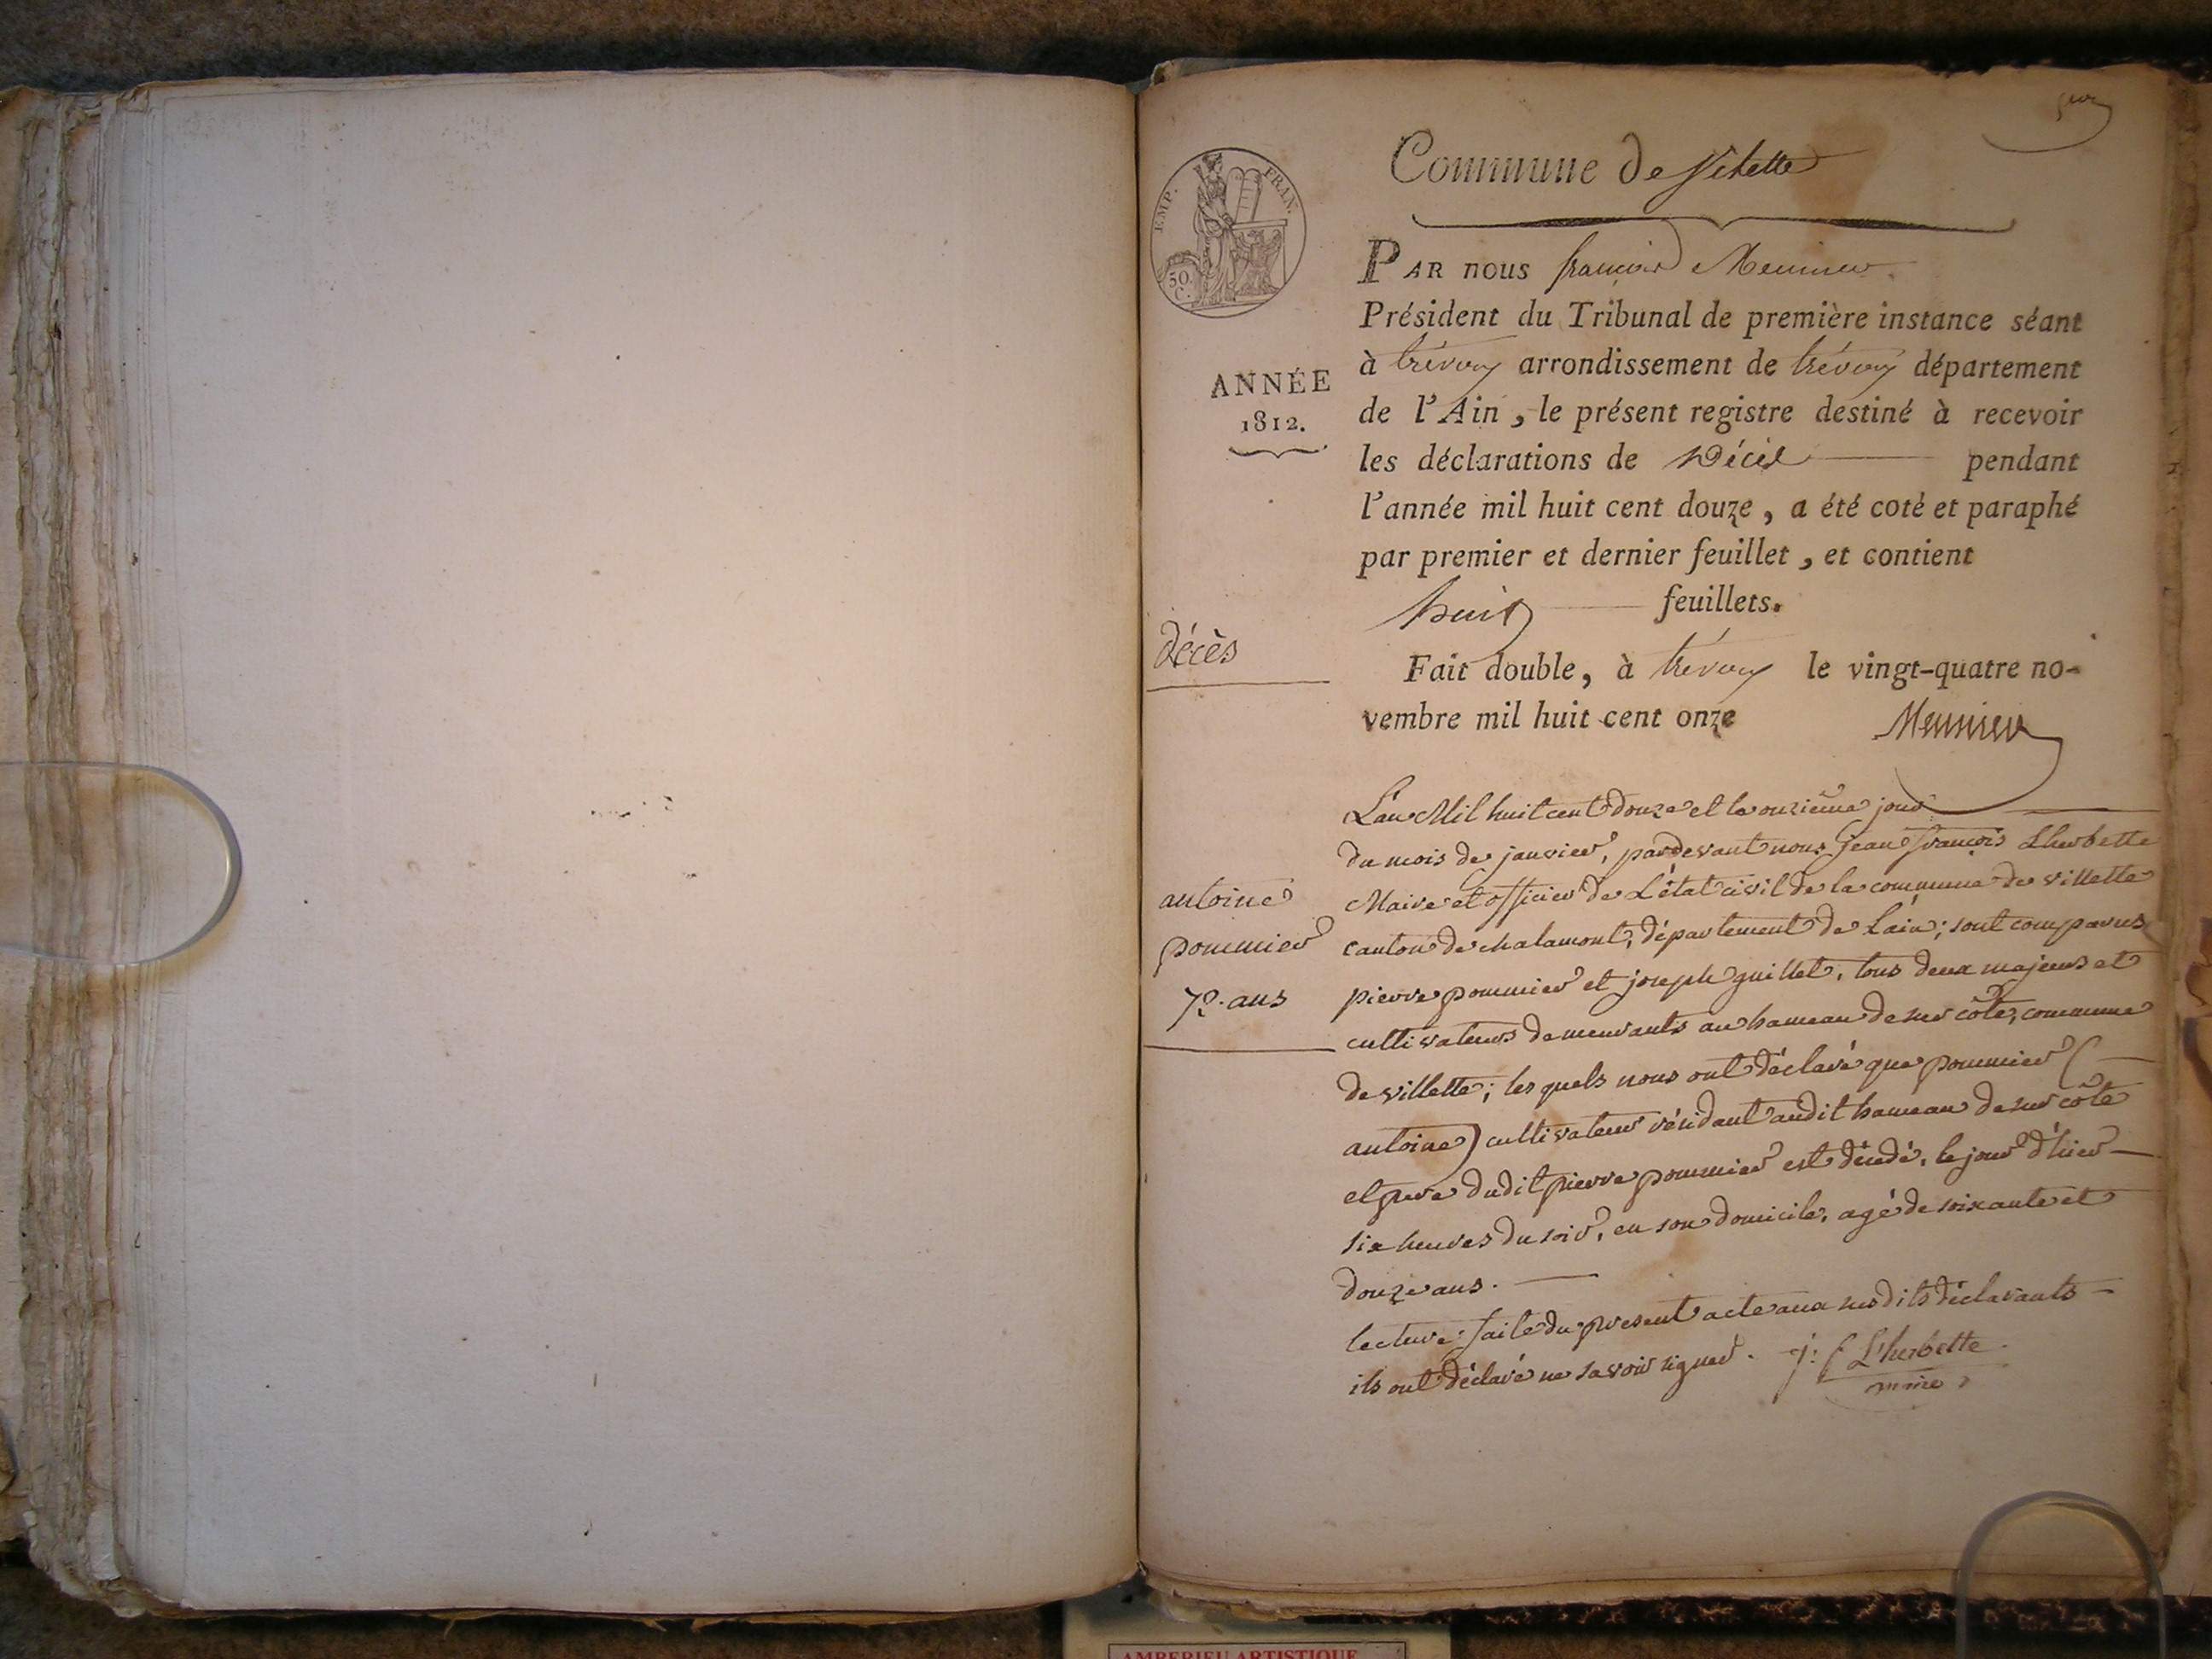 Commune de Villette
EMP. FRAN.
50
C.
PAR nous françois Meunier
Président du Tribunal de première instance séant
à trévoux arrondissement de trévoux département
ANNÉE
1812.
de l'Ain, le présent registre destiné à recevoir
les déclarations de Décès pendant
l'année mil huit cent douze, a été coté et paraphé
par premier et dernier feuillet, et contient
huit feuillets.
décès
Fait double, à trévoux le vingt-quatre no-
vembre mil huit cent onze
Meunier
antoine
pommier
72. ans
L'an Mil huit cent douze et le onzième jour
du mois de janvier, pardevant nous jean françois Lherbette
Maire et officier de L'état civil de la commune de villette
canton de chalamont, département de Lain; sont comparus
pierre pommier et joseph guillet, tous deux majeurs et
cultivateurs demeurants au hameau de sur côte, commune
de villette; les quels nous ont déclaré que pommier (
antoine) cultivateur résidant audit hameau de sur côte
et pere dudit pierre pommier est décédé, le jour d'hier
six heures du soir, en son domicile, agé de soixante et
douze ans.
lecture faite du present acte aux susdits déclarants
ils ont déclaré ne savoir signer. j: f L'herbette
maire
AMBERIEU ARTISTIQUE